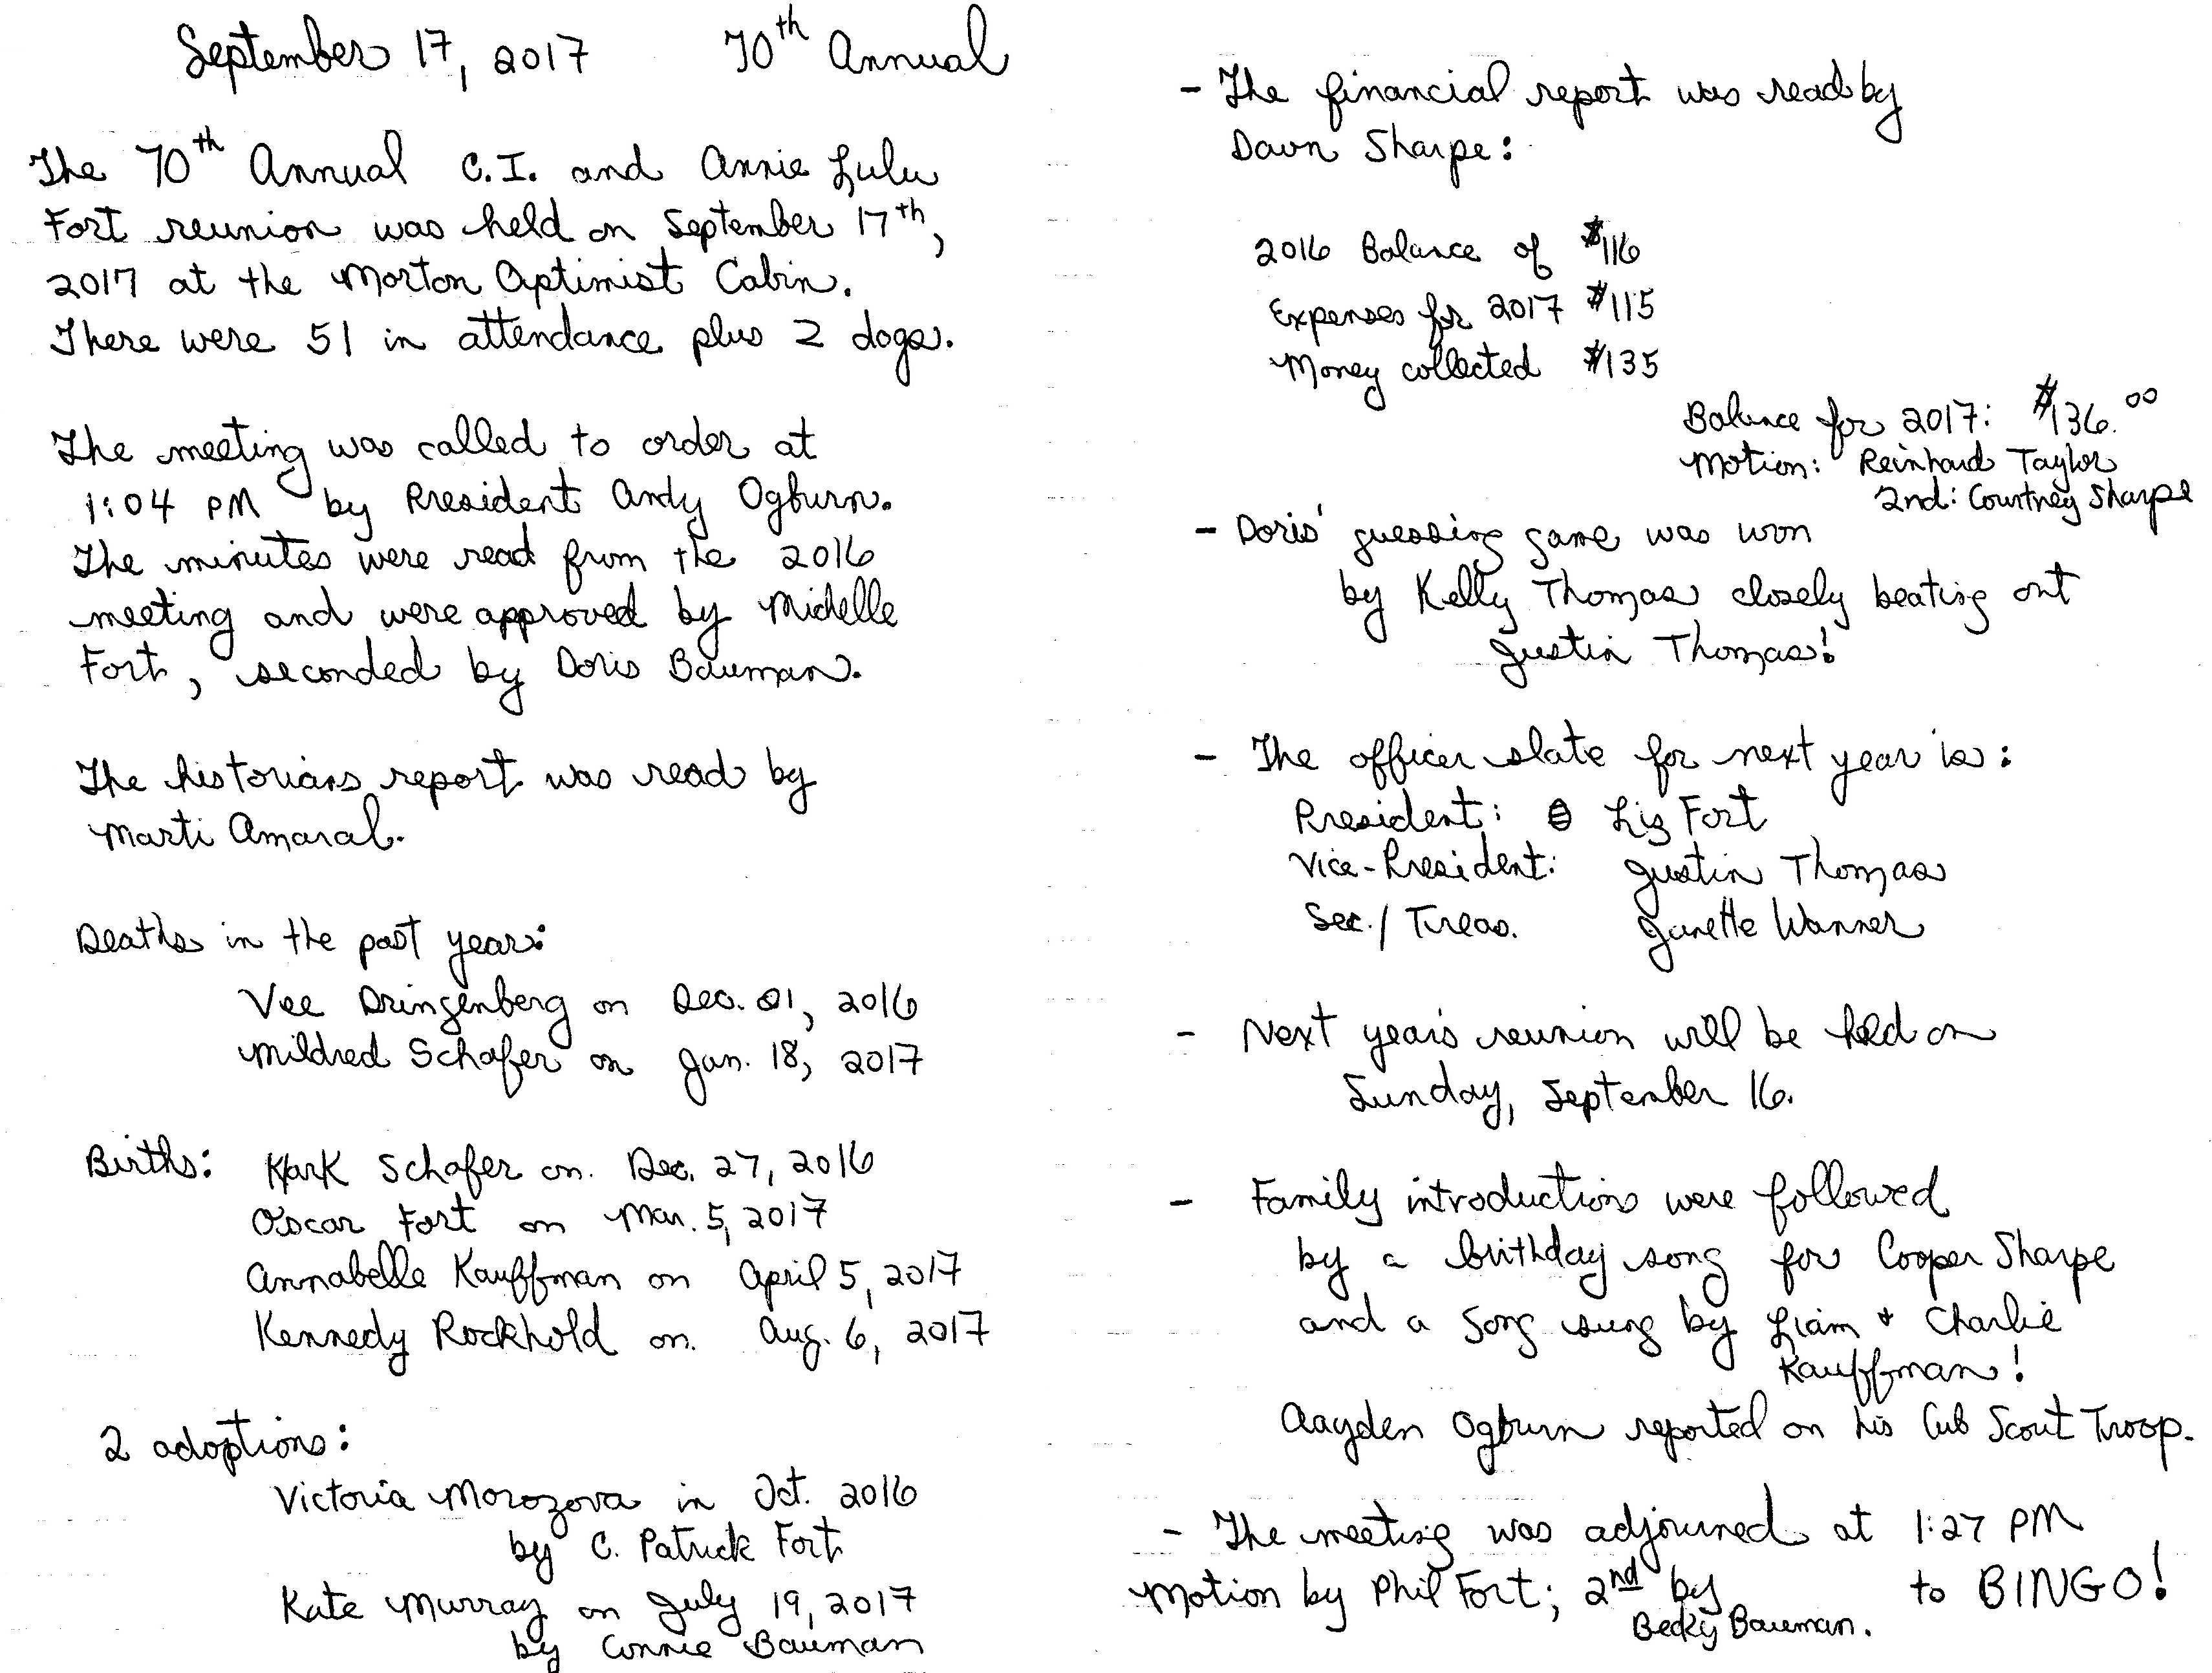 September 17, 2017 70th Annual
The 70th Annual C.I. and Annie Lulu
Fort reunion was held on September 17th,
2017 at the Morton Optimist Cabin.
There were 51 in attendance plus 2 dogs.
The meeting was called to order at
1:04 PM by President Andy Ogburn.
The minutes were read from the 2016
meeting and were approved by Michelle
Fort, seconded by Doris Bauman.
The historians report was read by
Marti Amaral.
Deaths in the past year:
Vee Dringenberg on Dec. 01, 2016
Mildred Schafer on Jan. 18, 2017
Births: Hark Schafer on. Dec. 27, 2016
Oscar Fort on Mar. 5, 2017
Annabelle Kauffman on April 5, 2017
Kennedy Rockhold on. Aug. 6, 2017
2 adoptions:
Victoria Morozova in Oct. 2016
by C. Patrick Fort
Kate Murray on July 19, 2017
by Connie Bauman
- The financial report was read by
Dawn Sharpe:
2016 Balance of $116
Expenses for 2017 $115
Money collected $135
Balance for 2017: $136.00
Motion: Reinhard Taylor
2nd: Courtney Sharpe
- Doris' guessing game was won
by Kelly Thomas closely beating out
Justin Thomas!
- The officer slate for next year is:
President: Liz Fort
Vice-President: Justin Thomas
Sec./Treas. Janette Wanner
- Next year's reunion will be held on
Sunday, September 16.
- Family introductions were followed
by a birthday song for Cooper Sharpe
and a song sung by Liam + Charlie
Kauffman!
Aayden Ogburn reported on his Cub Scout Troop.
- The meeting was adjourned at 1:27 PM
Motion by Phil Fort; 2nd by to BINGO!
Becky Bauman.